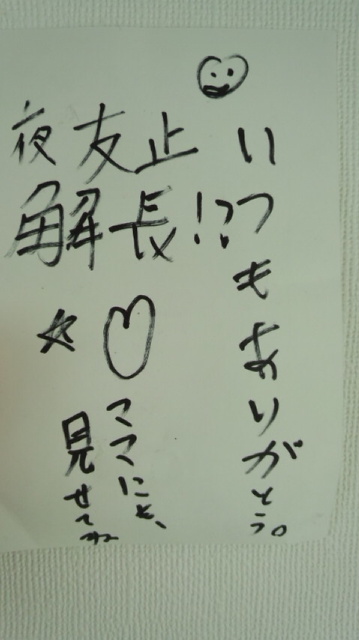 いつもありがとう。
夜友止
解長!?
ママにも、
見せてね